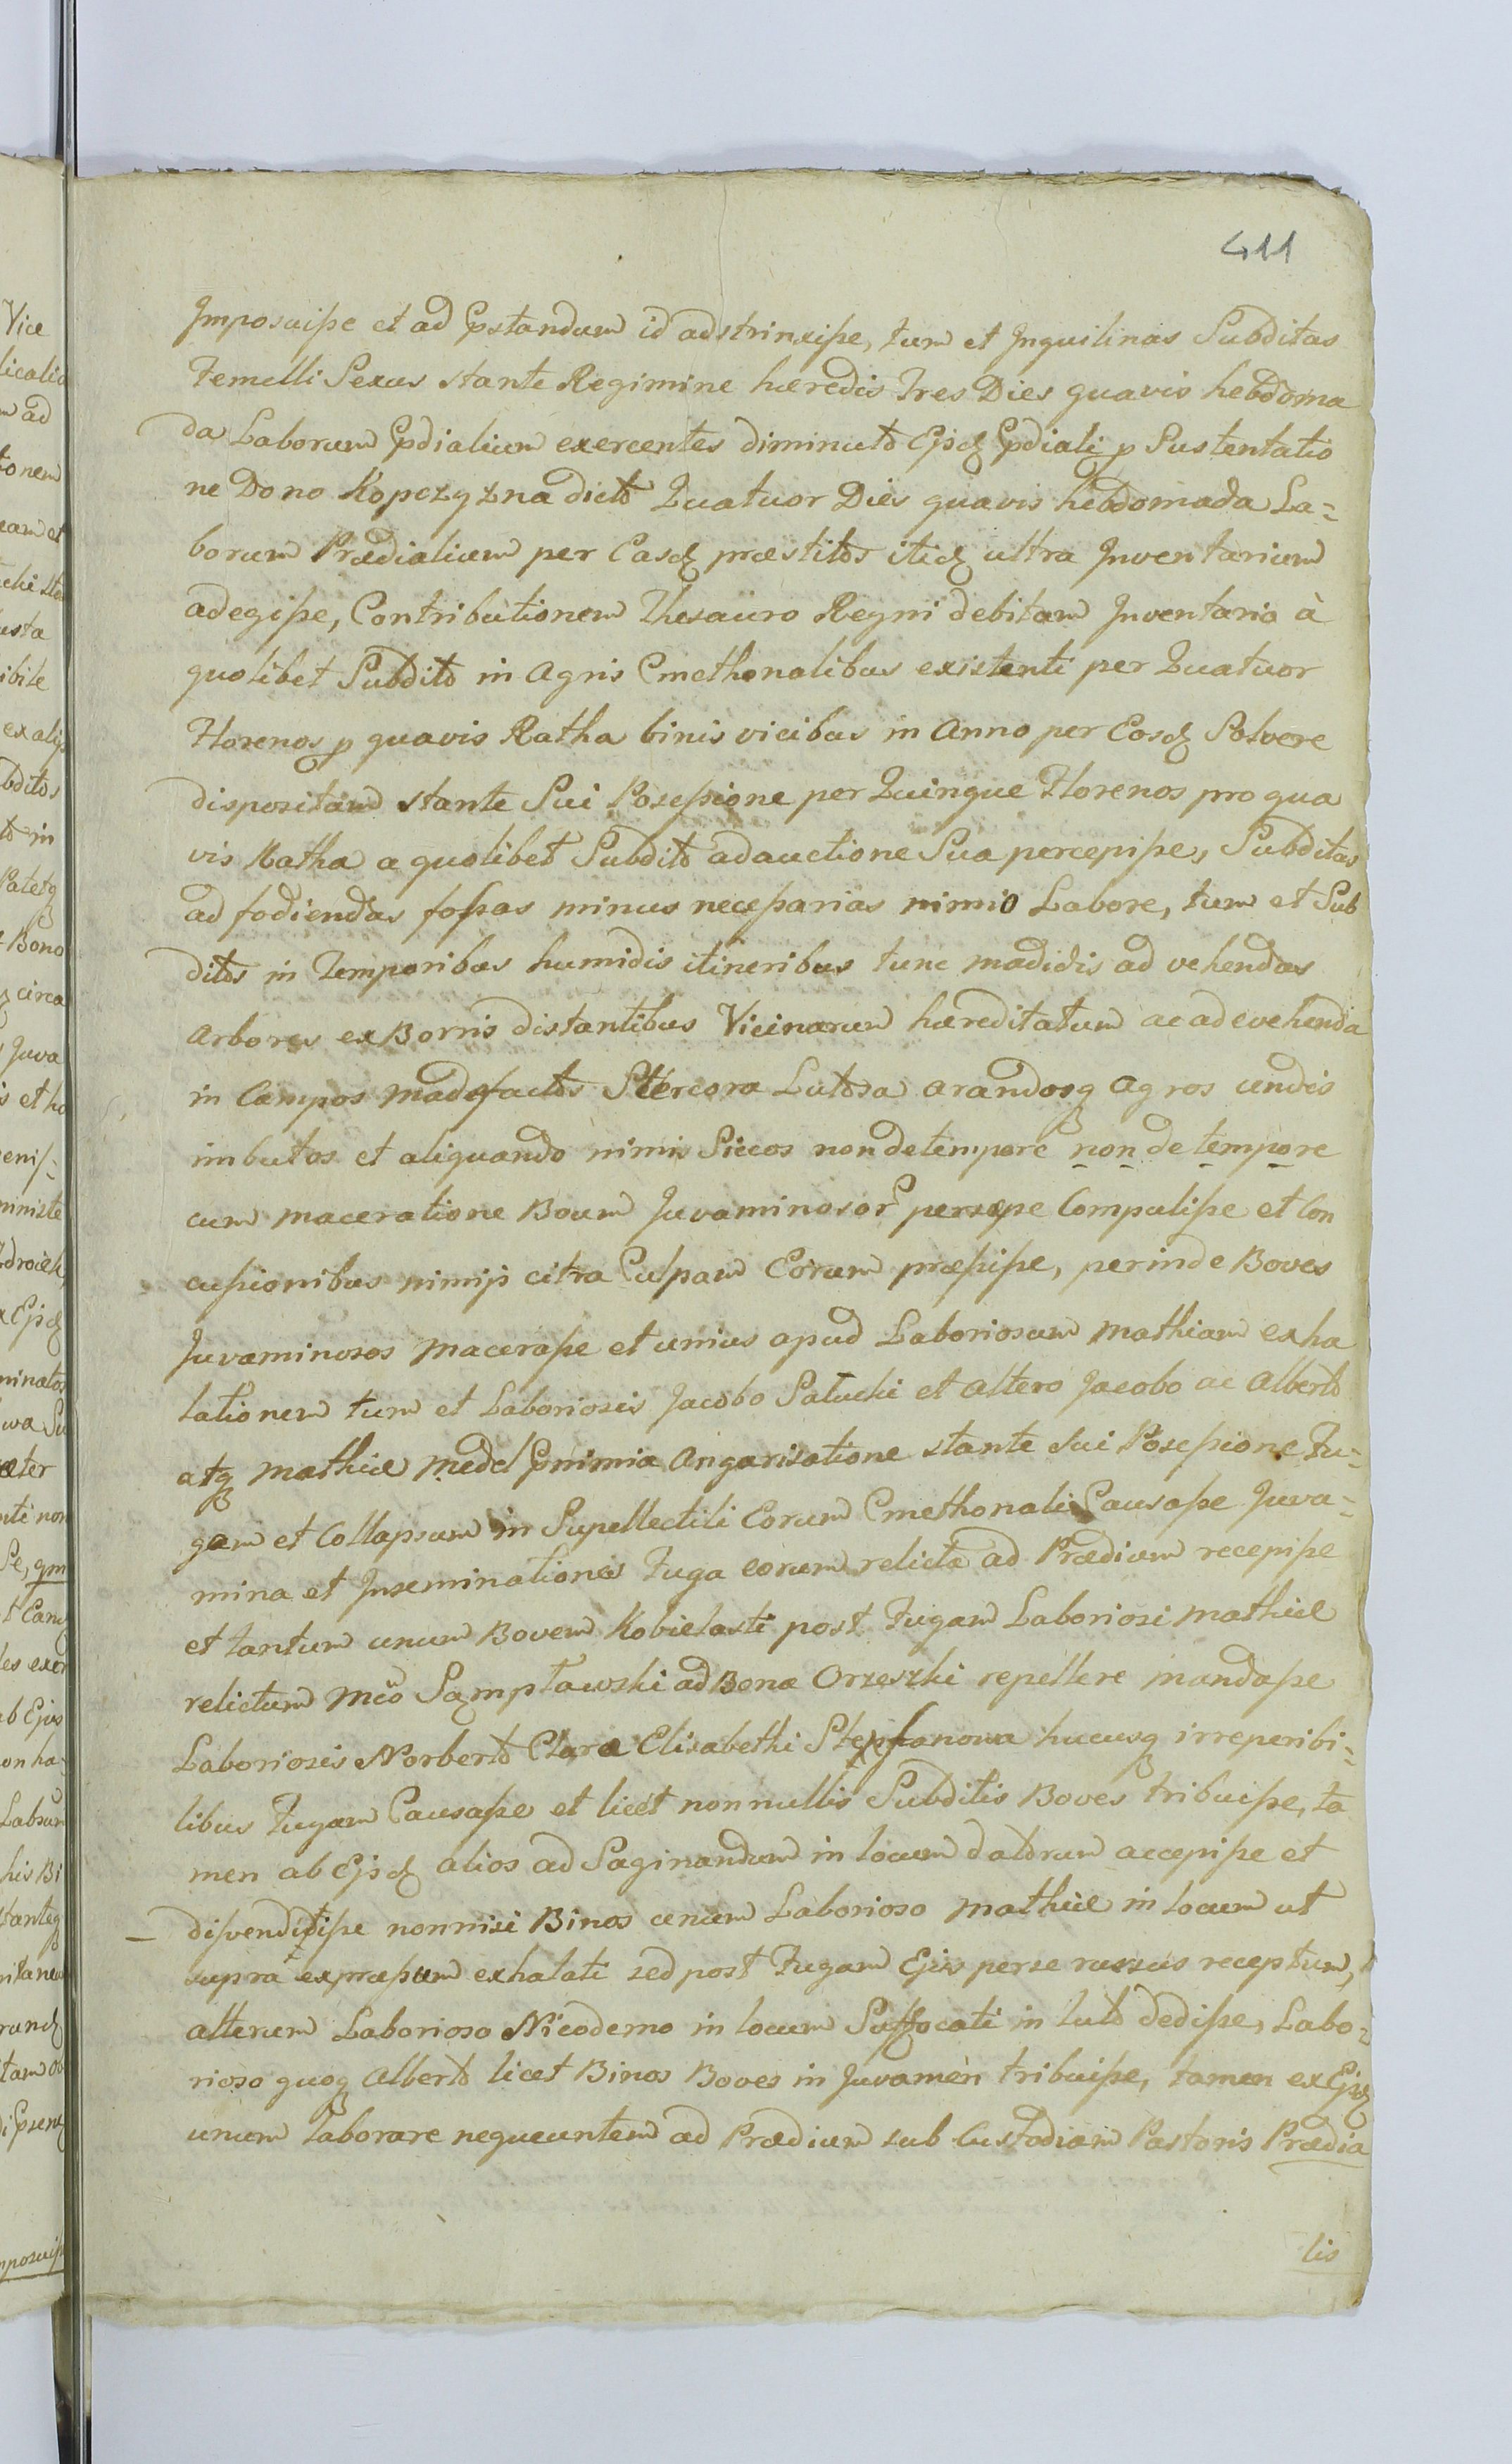 411
Imposuisse et ad Pstandum id adstrinxisse, tum et Inquilinas Subditas
Femelli Sexus stante Regimine hæredis Tres Dies quavis hebdoma
da Laborum Pdialium exercentes diminuto Ejsd Pdiali p Sustentatio
ne Dono Kopczyzna dicto Quatuor Dies quavis hebdomada La=
borum Prædialium per Easd præstitos itid ultra Inventarium
adegisse, Contributionem Thesauro Regni debitam Inventario à
quolibet Subdito in Agris Cmethonalibus existenti per Quatuor
Florenos p quavis Ratha binis vicibus in Anno per Eosd Solvere
dispositam stante Sui Posessione per Quinque Florenos pro qua
vis Ratha a quolibet Subdito adauctione Sua percepisse, Subditas
ad fodiendas fossas minus necessarias nimio Labore, tum et Sub
ditos in Temporibus humidis itineribus tunc madidis ad vehendas
Arbores ex Borris distantibus Vicinarum hæreditatum ac ad evehenda
in Campos madefactos Stercora Lutosa arandosq Agros undis
imbutos et aliquando nimis Siccos non de tempore non de tempore
cum maceratione Boum Juvaminosor persæpe Compulisse et Con
cussionibus nimijs citra Culpam Eorum pressisse, perinde Boves
Juvaminosos macerasse et unius apud Laboriosum Mathiam exha
lationem tum et Laboriosis Jacobo Satucki et altero Jacobo ac Alberto
atq Mathiæ Medel Pnimia Angarisatione stante sui Posessione Fu=
gam et Collapsum in Supellectili Eorum Cmethonali Causasse Juva=
mina et Inseminationes Fuga eorum relicta ad Prædium recepisse
et tantum unum Bovem Kobielasti post Fugam Laboriosi Mathiæ
relictum Mco Sąmpławski ad Bona Orzeszki repellere mandasse
Laboriosis Norberto Clara Elisabethi Stephanowa hucusq irreperibi=
libus Fugam Causasse et licet nonnullis Subditis Boves tribuisse, ta
men ab Ejsd alios ad Saginandum in locum datorum accepisse et
disvendidisse nonnisi Binos unum Laborioso Mathiæ in locum ut
supra expressum exhalati sed post Fugam Ejus per se rursus receptum,
alterum Laborioso Nicodemo in locum Suffocati in luto dedisse, Labo=
rioso quoq Alberto licet Binos Boves in Juvamen tribuisse, tamen ex Ejsd
unum laborare nequeuntem ad Prædium sub Custodiam Pastoris Prædia
lis